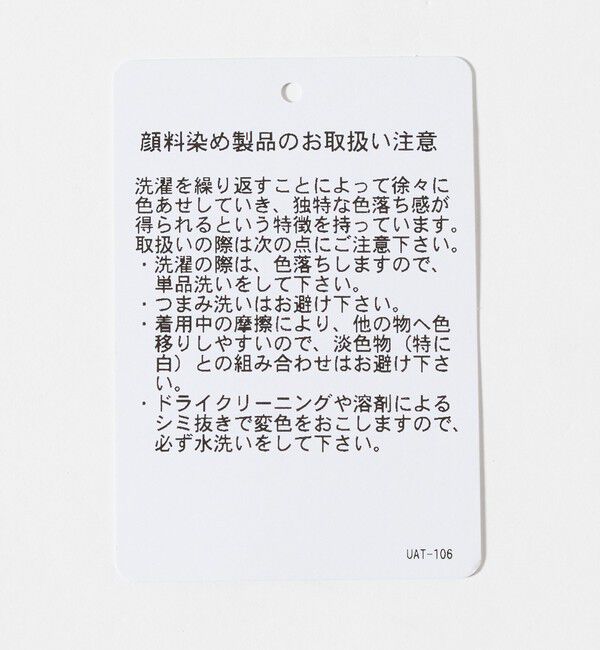 顔料染め製品のお取扱い注意
洗濯を繰り返すことによって徐々に
色あせしていき、独特な色落ち感が
得られるという特徴を持っています。
取扱いの際は次の点にご注意下さい。
・洗濯の際は、色落ちしますので、
単品洗いをして下さい。
・つまみ洗いはお避け下さい。
・着用中の摩擦により、他の物へ色
移りしやすいので、淡色物（特に
白）との組み合わせはお避け下さ
い。
・ドライクリーニングや溶剤による
シミ抜きで変色をおこしますので、
必ず水洗いをして下さい。
UAT-106